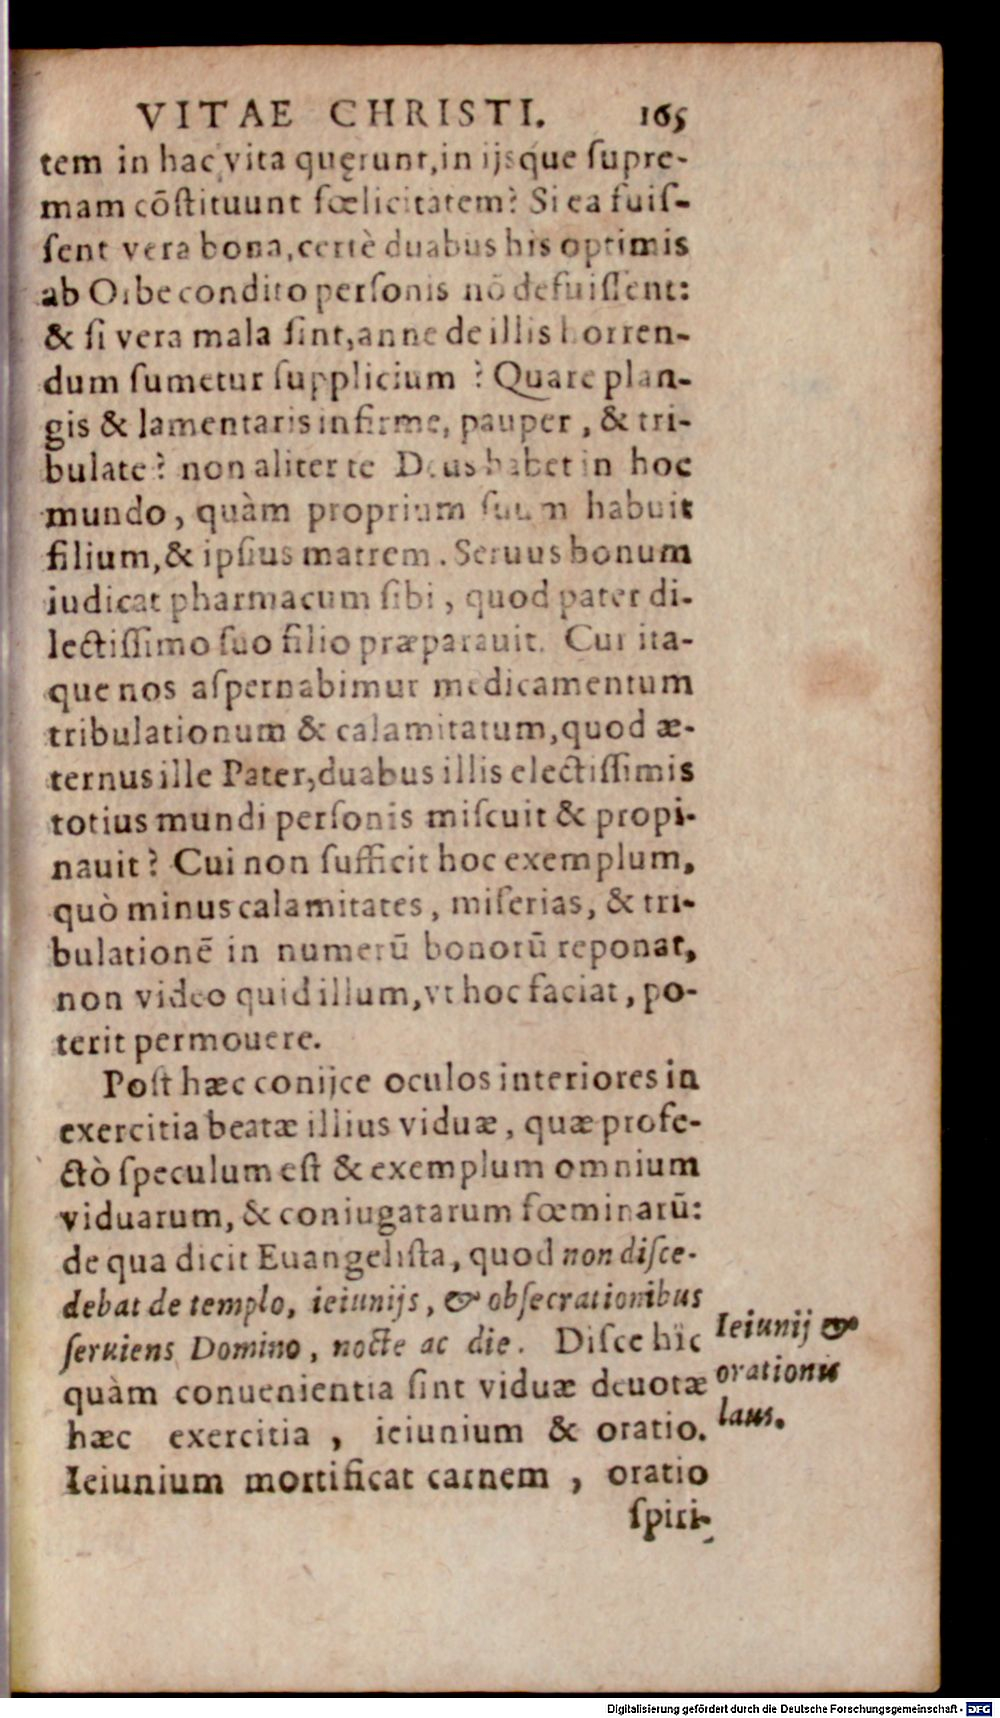 VITAE CHRISTI. 165
tem in hac vita quęrunt, in ijsque ſupre-
mam cōſtituunt fœlicitatem? Si ea fuiſ-
ſent vera bona, certè duabus his optimis
ab Orbe condito perſonis nō defuiſſent:
& ſi vera mala ſint, anne de illis horren-
dum ſumetur ſupplicium ? Quare plan-
gis & lamentaris infirme, pauper, & tri-
bulate? non aliter te Deus habet in hoc
mundo, quàm proprium ſuum habuit
filium, & ipſius matrem. Seruus bonum
iudicat pharmacum ſibi, quod pater di-
lectiſſimo ſuo filio præparauit. Cur ita-
que nos aſpernabimur medicamentum
tribulationum & calamitatum, quod æ-
ternus ille Pater, duabus illis electiſſimis
totius mundi perſonis miſcuit & propi-
nauit? Cui non ſufficit hoc exemplum,
quò minus calamitates, miſerias, & tri-
bulationē in numerū bonorū reponat,
non video quid illum, vt hoc faciat, po-
terit permouere.
Poſt hæc conijce oculos interiores in
exercitia beatæ illius viduæ, quæ profe-
ctò ſpeculum eſt & exemplum omnium
viduarum, & coniugatarum fœminarū:
de qua dicit Euangeliſta, quod non diſce-
debat de templo, ieiunijs, & obſecrationibus
ſeruiens Domino, nocte ac die. Diſce hîc
quàm conuenientia ſint viduæ deuotæ
hæc exercitia, ieiunium & oratio.
Ieiunium mortificat carnem, oratio
ſpiri-
Ieiunij &
orationis
laus.
Digitalisierung gefördert durch die Deutsche Forschungsgemeinschaft - DFG